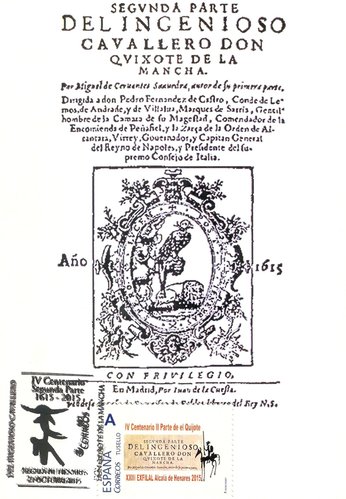 SEGVNDA PARTE
DEL INGENIOSO
CAVALLERO DON
QVIXOTE DE LA
MANCHA.
Por Miguel de Ceruantes Saauedra, autor de su primera parte.
Dirigida a don Pedro Fernandez de Castro, Conde de Le-
mos, de Andrade, y de Villalua, Marques de Sarria, Gentil-
hombre de la Camara de su Magestad, Comendador de la
Encomienda de Peñafiel, y la Zarça de la Orden de Al-
cantara, Virrey, Gouernador, y Capitan General
del Reyno de Napoles, y Presidente del su-
premo Consejo de Italia.
Año 1615
CON PRIVILEGIO,
En Madrid, Por Iuan de la Cuesta.
librero del Rey N.S.
IV Centenario
Segunda Parte
1615 - 2015
DEL INGENIOSO CAVALLERO
QVIXOTE DE LA MANCHA
CORREOS
A
ESPAÑA
CORREOS
TUSELLO
IV Centenario II Parte de el Quijote
SEGVNDA PARTE
DEL INGENIOSO
CAVALLERO DON
QVIXOTE DE LA
MANCHA
XXIII EXFILAL Alcala de Henares 2015